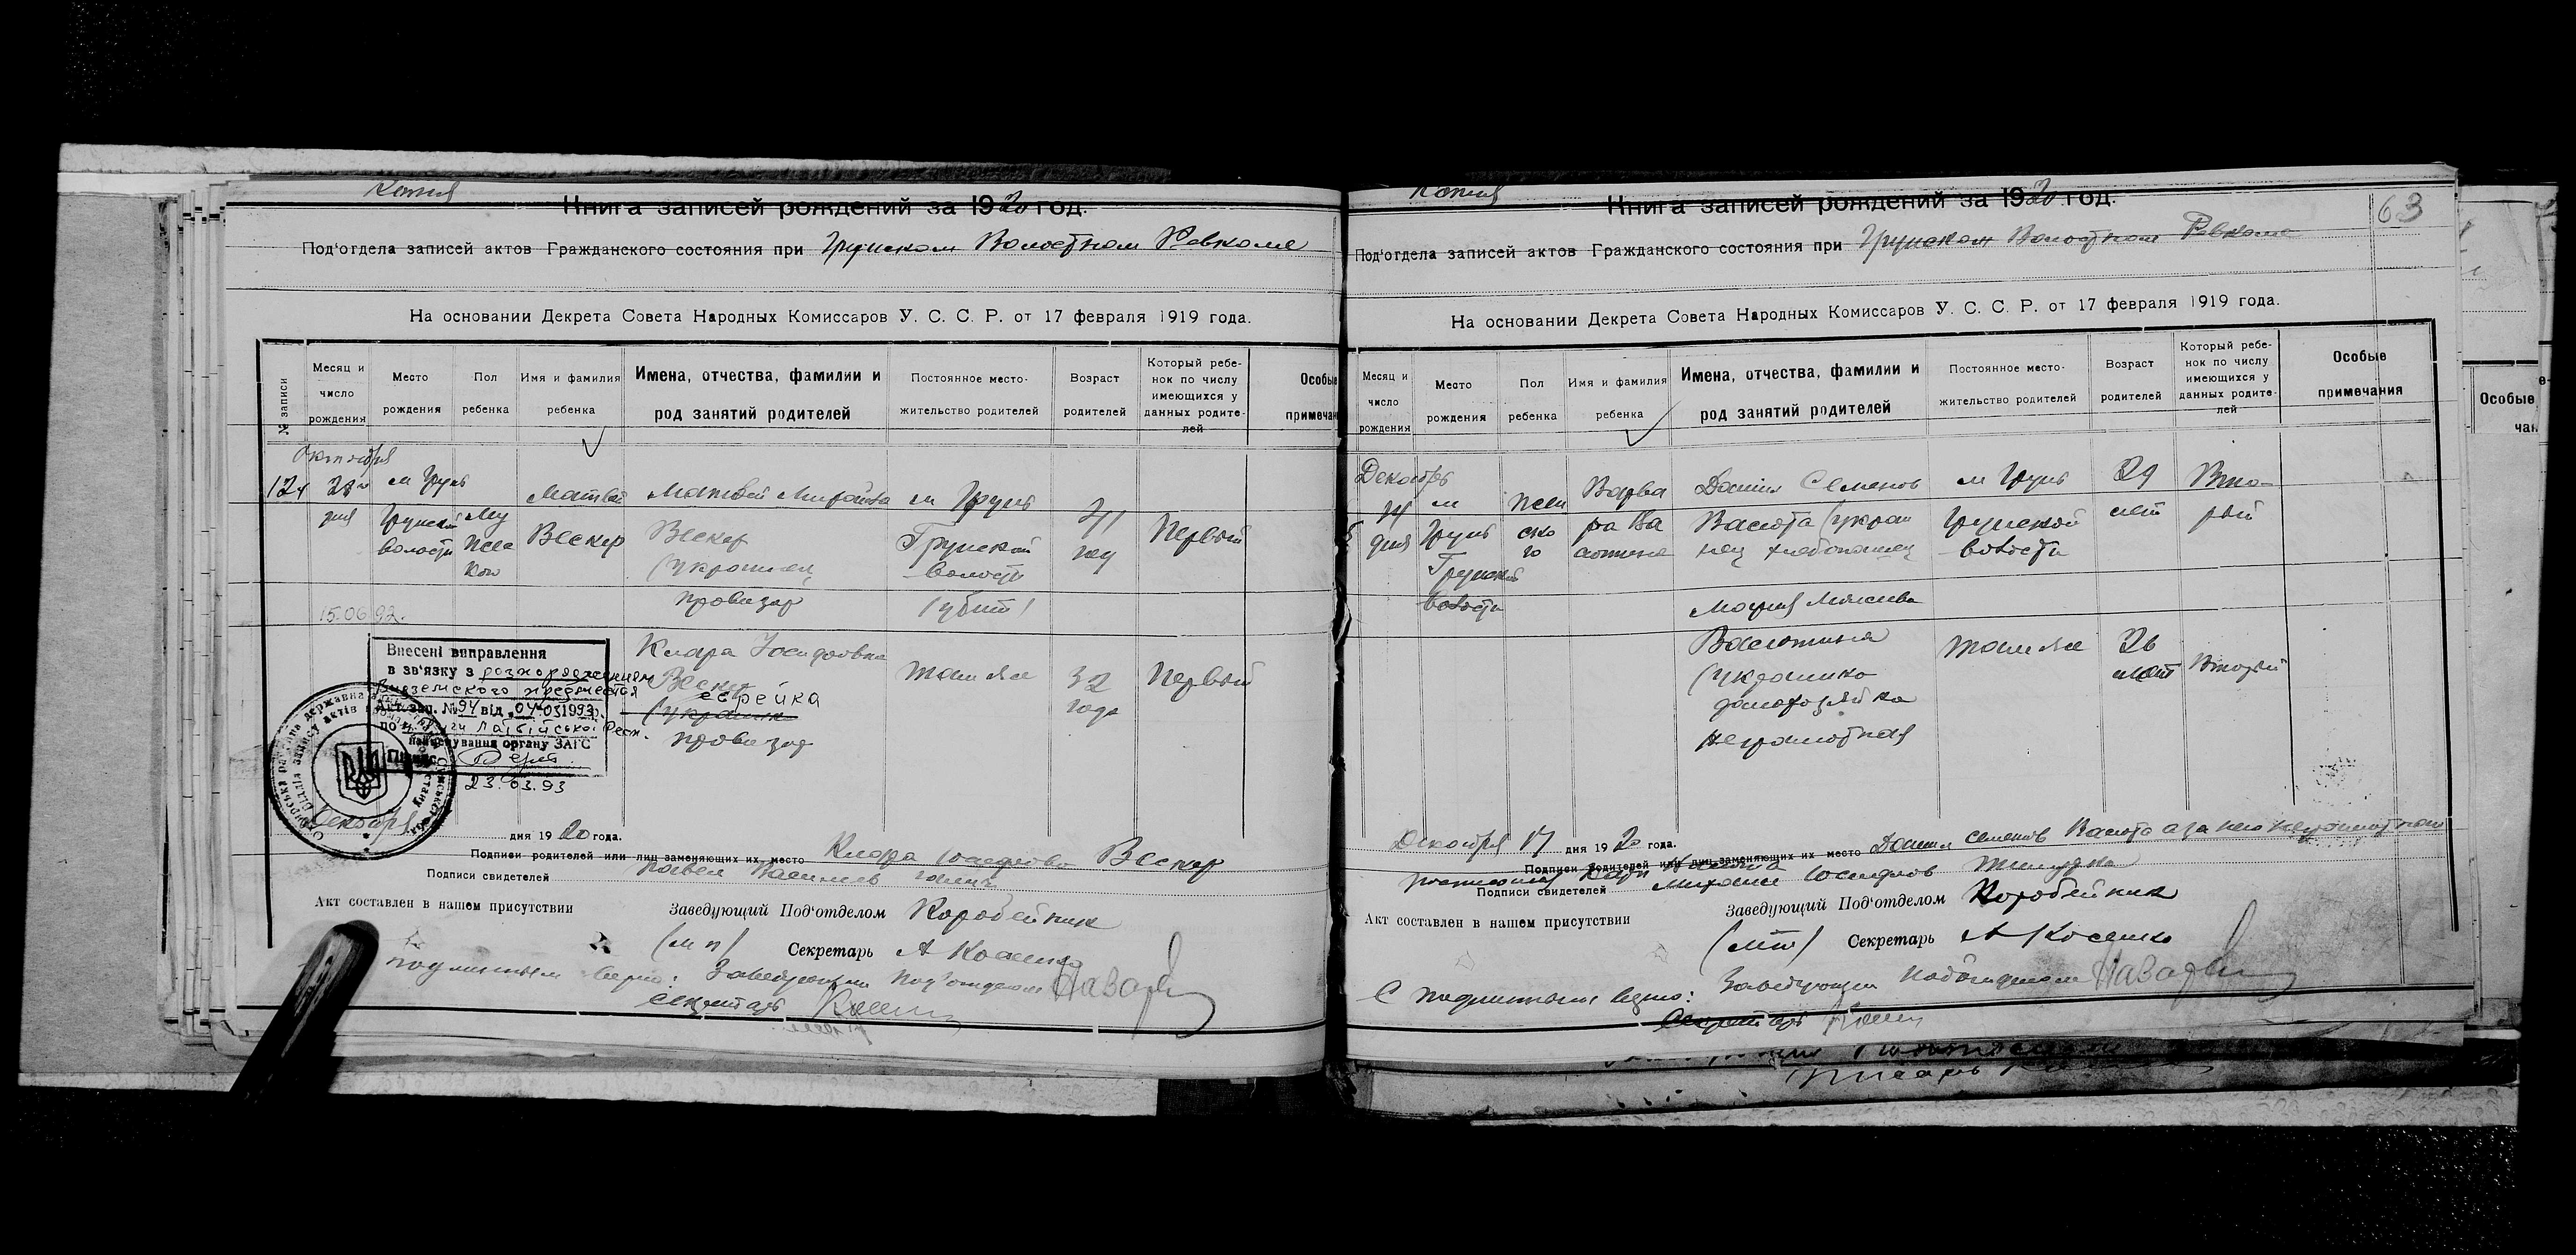 Копия
Книга записей рождений за 1920 год.
Под'отдела записей актов Гражданского состояния при Грунском Волостном Ревкоме
На основании Декрета Совета Народных Комиссаров У. С. С. Р. от 17 февраля 1919 года.
№ записи
Месяц и число рождения
Место рождения
Пол ребенка
Имя и фамилия ребенка
Имена, отчества, фамилии и род занятий родителей
Постоянное место-жительство родителей
Возраст родителей
Который ребе-нок по числу имеющихся у данных родите-лей
Особые
примечан
Октября
124
дня
м Грунь
Грунской
волости
Му
жес
кого
Матвей
Вескер
Матвей
Вескер
(украинец
провизор
м Грунь
Грунской
волости
(убит)
31
год
Первый
15.06.92.
Внесені виправлення
в зв'язку з розпорядженням
Акт. зап. № 94 від 04 03 1993
по Латвійської Респ.
найменування органу ЗАГС
Підпис
23.03.93
Клара Иосифовна
Вескер
еврейка
(украинк
провизор
там же
32
года
Первый
Декабря
дня 1920 года.
Подписи родителей или лиц заменяющих их место Клара Иосифовна Вескер
Подписи свидетелей Павел Васильев
Акт составлен в нашем присутствии Заведующий Под'отделом Коробейник
(м п) Секретарь А Косенко
С подлинным верно: Заведующий Под'отделом
Секретарь
Копия
63
Книга записей рождений за 1920 год.
Под'отдела записей актов Гражданского состояния при Грунском Волостном Ревкоме
На основании Декрета Совета Народных Комиссаров У. С. С. Р. от 17 февраля 1919 года.
Месяц и число рождения
Место рождения
Пол ребенка
Имя и фамилия ребенка
Имена, отчества, фамилии и род занятий родителей
Постоянное место-жительство родителей
Возраст родителей
Который ребе-нок по числу имеющихся у данных родите-лей
Особые примечания
Особые
чан
Декабрь
14
дня
м
Грунь
Грунской
волости
жен
ско
го
Варва
ра Ва
сютина
Даниил Семенов
Васюта (украи
нец хлебопашец
м Грунь
Грунской
волости
29
лет
Вто-
рый
Мария
Васютина
(украинка
домохозяйка
неграмотная
там же
26
лет
Второй
Декабря 17 дня 1920 года.
Подписи родителей или лиц заменяющих их место Даниил Семенов Васюта а за него неграмотного
Подписи свидетелей Михаил Иосифов
Акт составлен в нашем присутствии Заведующий Под'отделом Коробейник
(мп) Секретарь А Косенко
С подлинным верно: Заведующий Подотделом
Секретарь